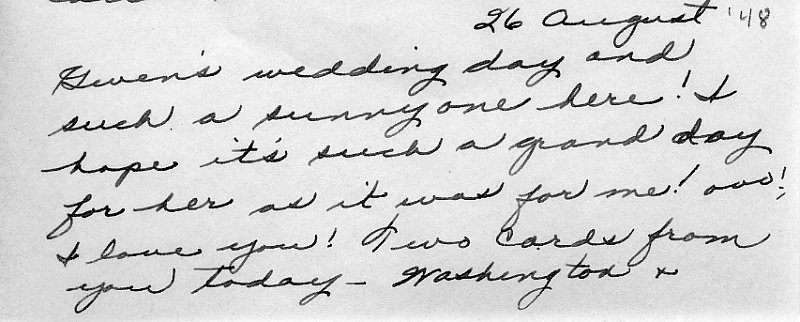 26 August '48
Gwen's wedding day and
such a sunny one here! I
hope it's such a grand day
for her as it was for me!
I love you! Two cards from
you today - Washington